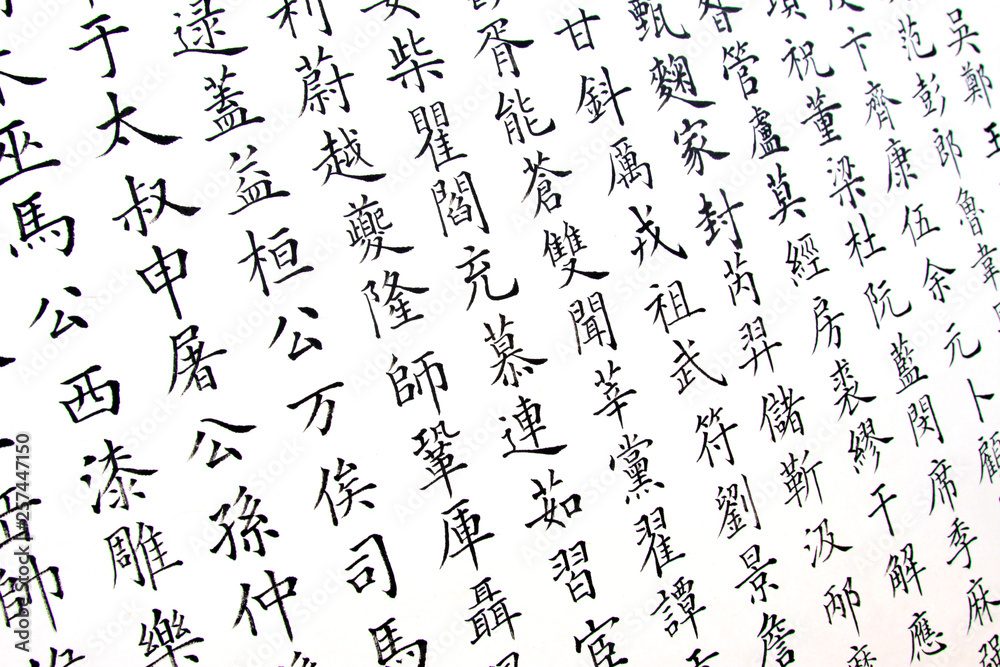 吳鄭王
范彭郎魯韋
卞齊康伍余元卜顧
祝董梁杜阮藍閔席季麻
管盧莫經房裘繆干解應
甄麴家封芮羿儲靳汲邴
甘鈄厲戎祖武符劉景詹
胥能蒼雙聞莘黨翟譚
柴瞿閻充慕連茹習宦
利蔚越夔隆師鞏厙聶
逯蓋益桓公万俟司馬
于太叔申屠公孫仲
巫馬公西漆雕樂
師
Adobe Stock
#257447150